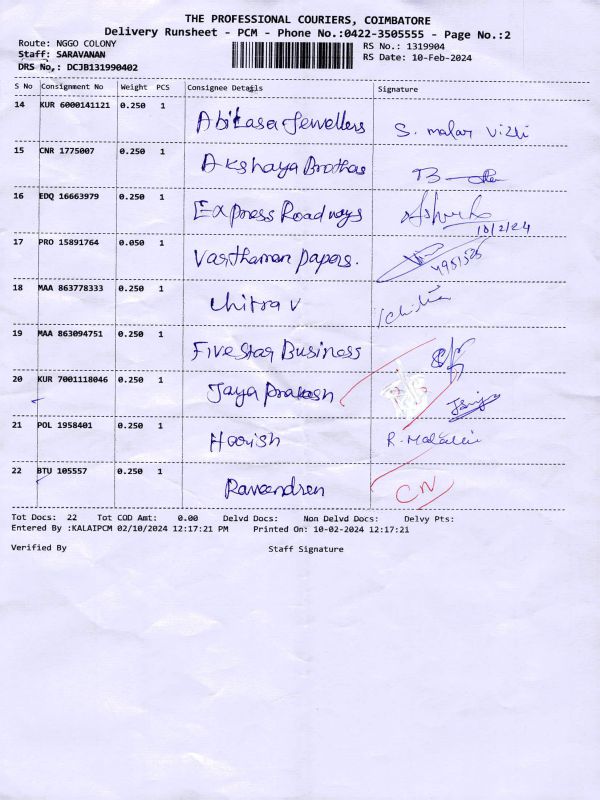 THE PROFESSIONAL COURIERS, COIMBATORE
Delivery Runsheet - PCM - Phone No.:0422-3505555 - Page No.:2
Route: NGGO COLONY RS No.: 1319904
Staff: SARAVANAN RS Date: 10-Feb-2024
DRS No.: DCJB131990402
S No Consignment No Weight PCS Consignee Details Signature
14 KUR 6000141121 0.250 1 Abikasa Jewellers S. malar vizhi
15 CNR 1775007 0.250 1 Akshaya Brothas
16 EDQ 16663979 0.250 1 Express Roadways
10/2/24
17 PRO 15891764 0.050 1 Vardhaman papers.
18 MAA 863778333 0.250 1 Chitra V
19 MAA 863094751 0.250 1 Five Star Business
20 KUR 7001118046 0.250 1 Jaya prakash
21 POL 1958401 0.250 1 Harish
22 BTU 105557 0.250 1 Raveendren CN
Tot Docs: 22 Tot COD Amt: 0.00 Delvd Docs: Non Delvd Docs: Delvy Pts:
Entered By :KALAIPCM 02/10/2024 12:17:21 PM Printed On: 10-02-2024 12:17:21
Verified By Staff Signature